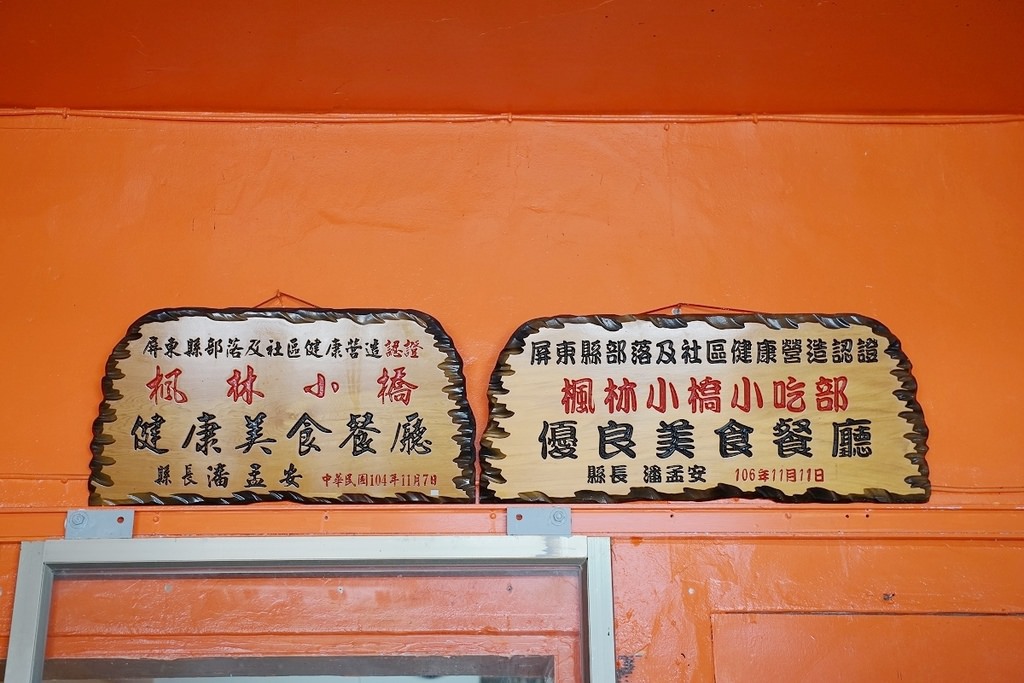 屏東縣部落及社區健康營造認證
楓林小橋
健康美食餐廳
縣長潘孟安 中華民國104年11月7日
屏東縣部落及社區健康營造認證
楓林小橋小吃部
優良美食餐廳
縣長 潘孟安 106年11月11日